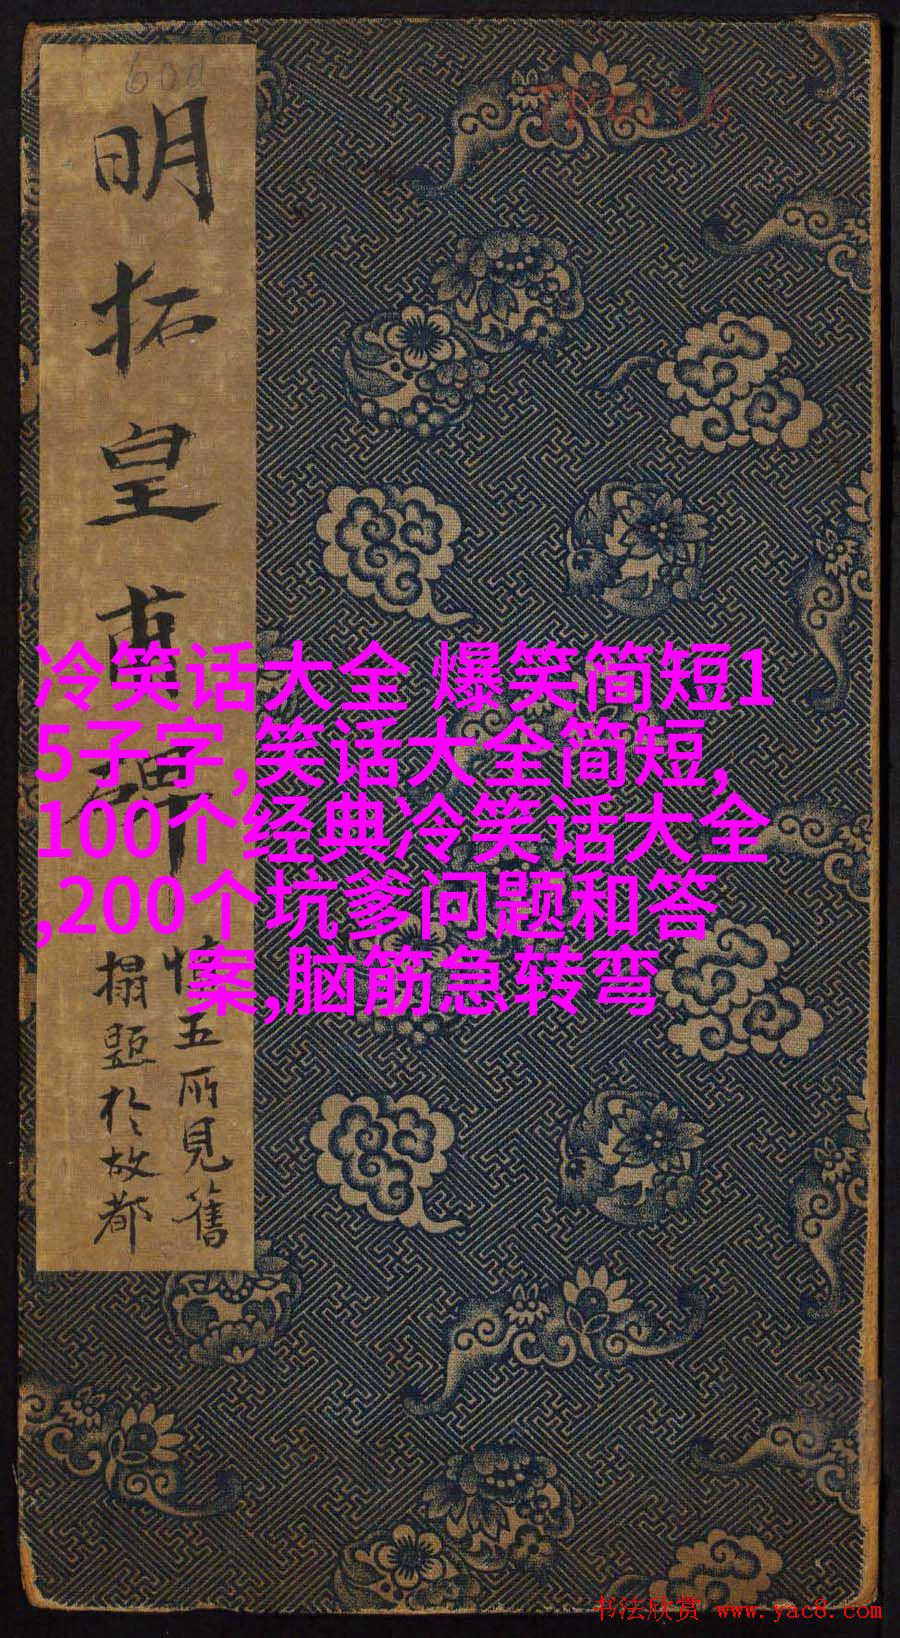 60d
明拓皇甫碑
慎五所見舊
搨題於故都
冷笑话大全 爆笑简短1
5子字,笑话大全简短,
100个经典冷笑话大全
,200个坑爹问题和答
案,脑筋急转弯
书法欣赏 www.yac8.com